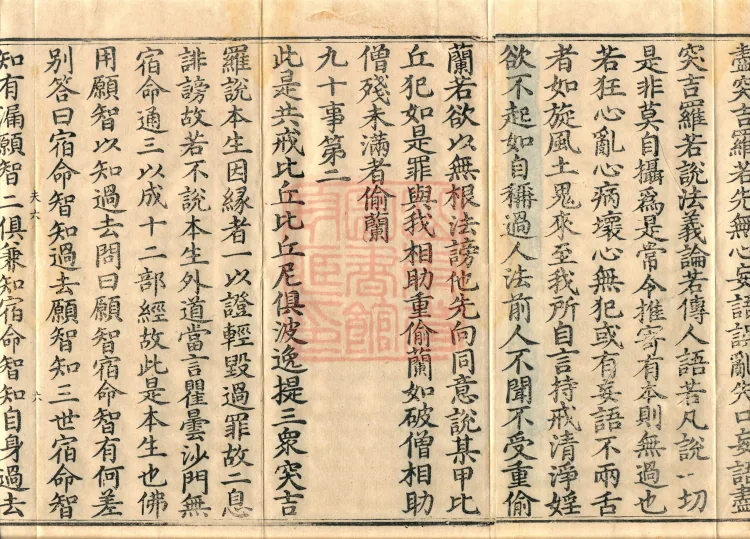 盡突吉羅若先無心妄語誤亂失口妄語盡
突吉羅若說法義論若傳人語若凡說一切
是非莫自攝爲是常令推寄有本則無過也
若狂心亂心病壞心無犯或有妄語不兩舌
者如旋風土鬼來至我所自言持戒清淨婬
欲不起如自稱過人法前人不聞不受重偷
蘭若欲以無根法謗他先向同意說某甲比
丘犯如是罪與我相助重偷蘭如破僧相助
僧殘未滿者偷蘭
九十事第二
此是共戒比丘比丘尼俱波逸提三衆突吉
羅說本生因縁者一以證輕毀過罪故二息
誹謗故若不說本生外道當言瞿曇沙門無
宿命通三以成十二部經故此是本生也佛
用願智以知過去問曰願智宿命智有何差
別答曰宿命智知過去願智知三世宿命智
夫六 六
知有漏願智二俱兼知宿命智知自身過去